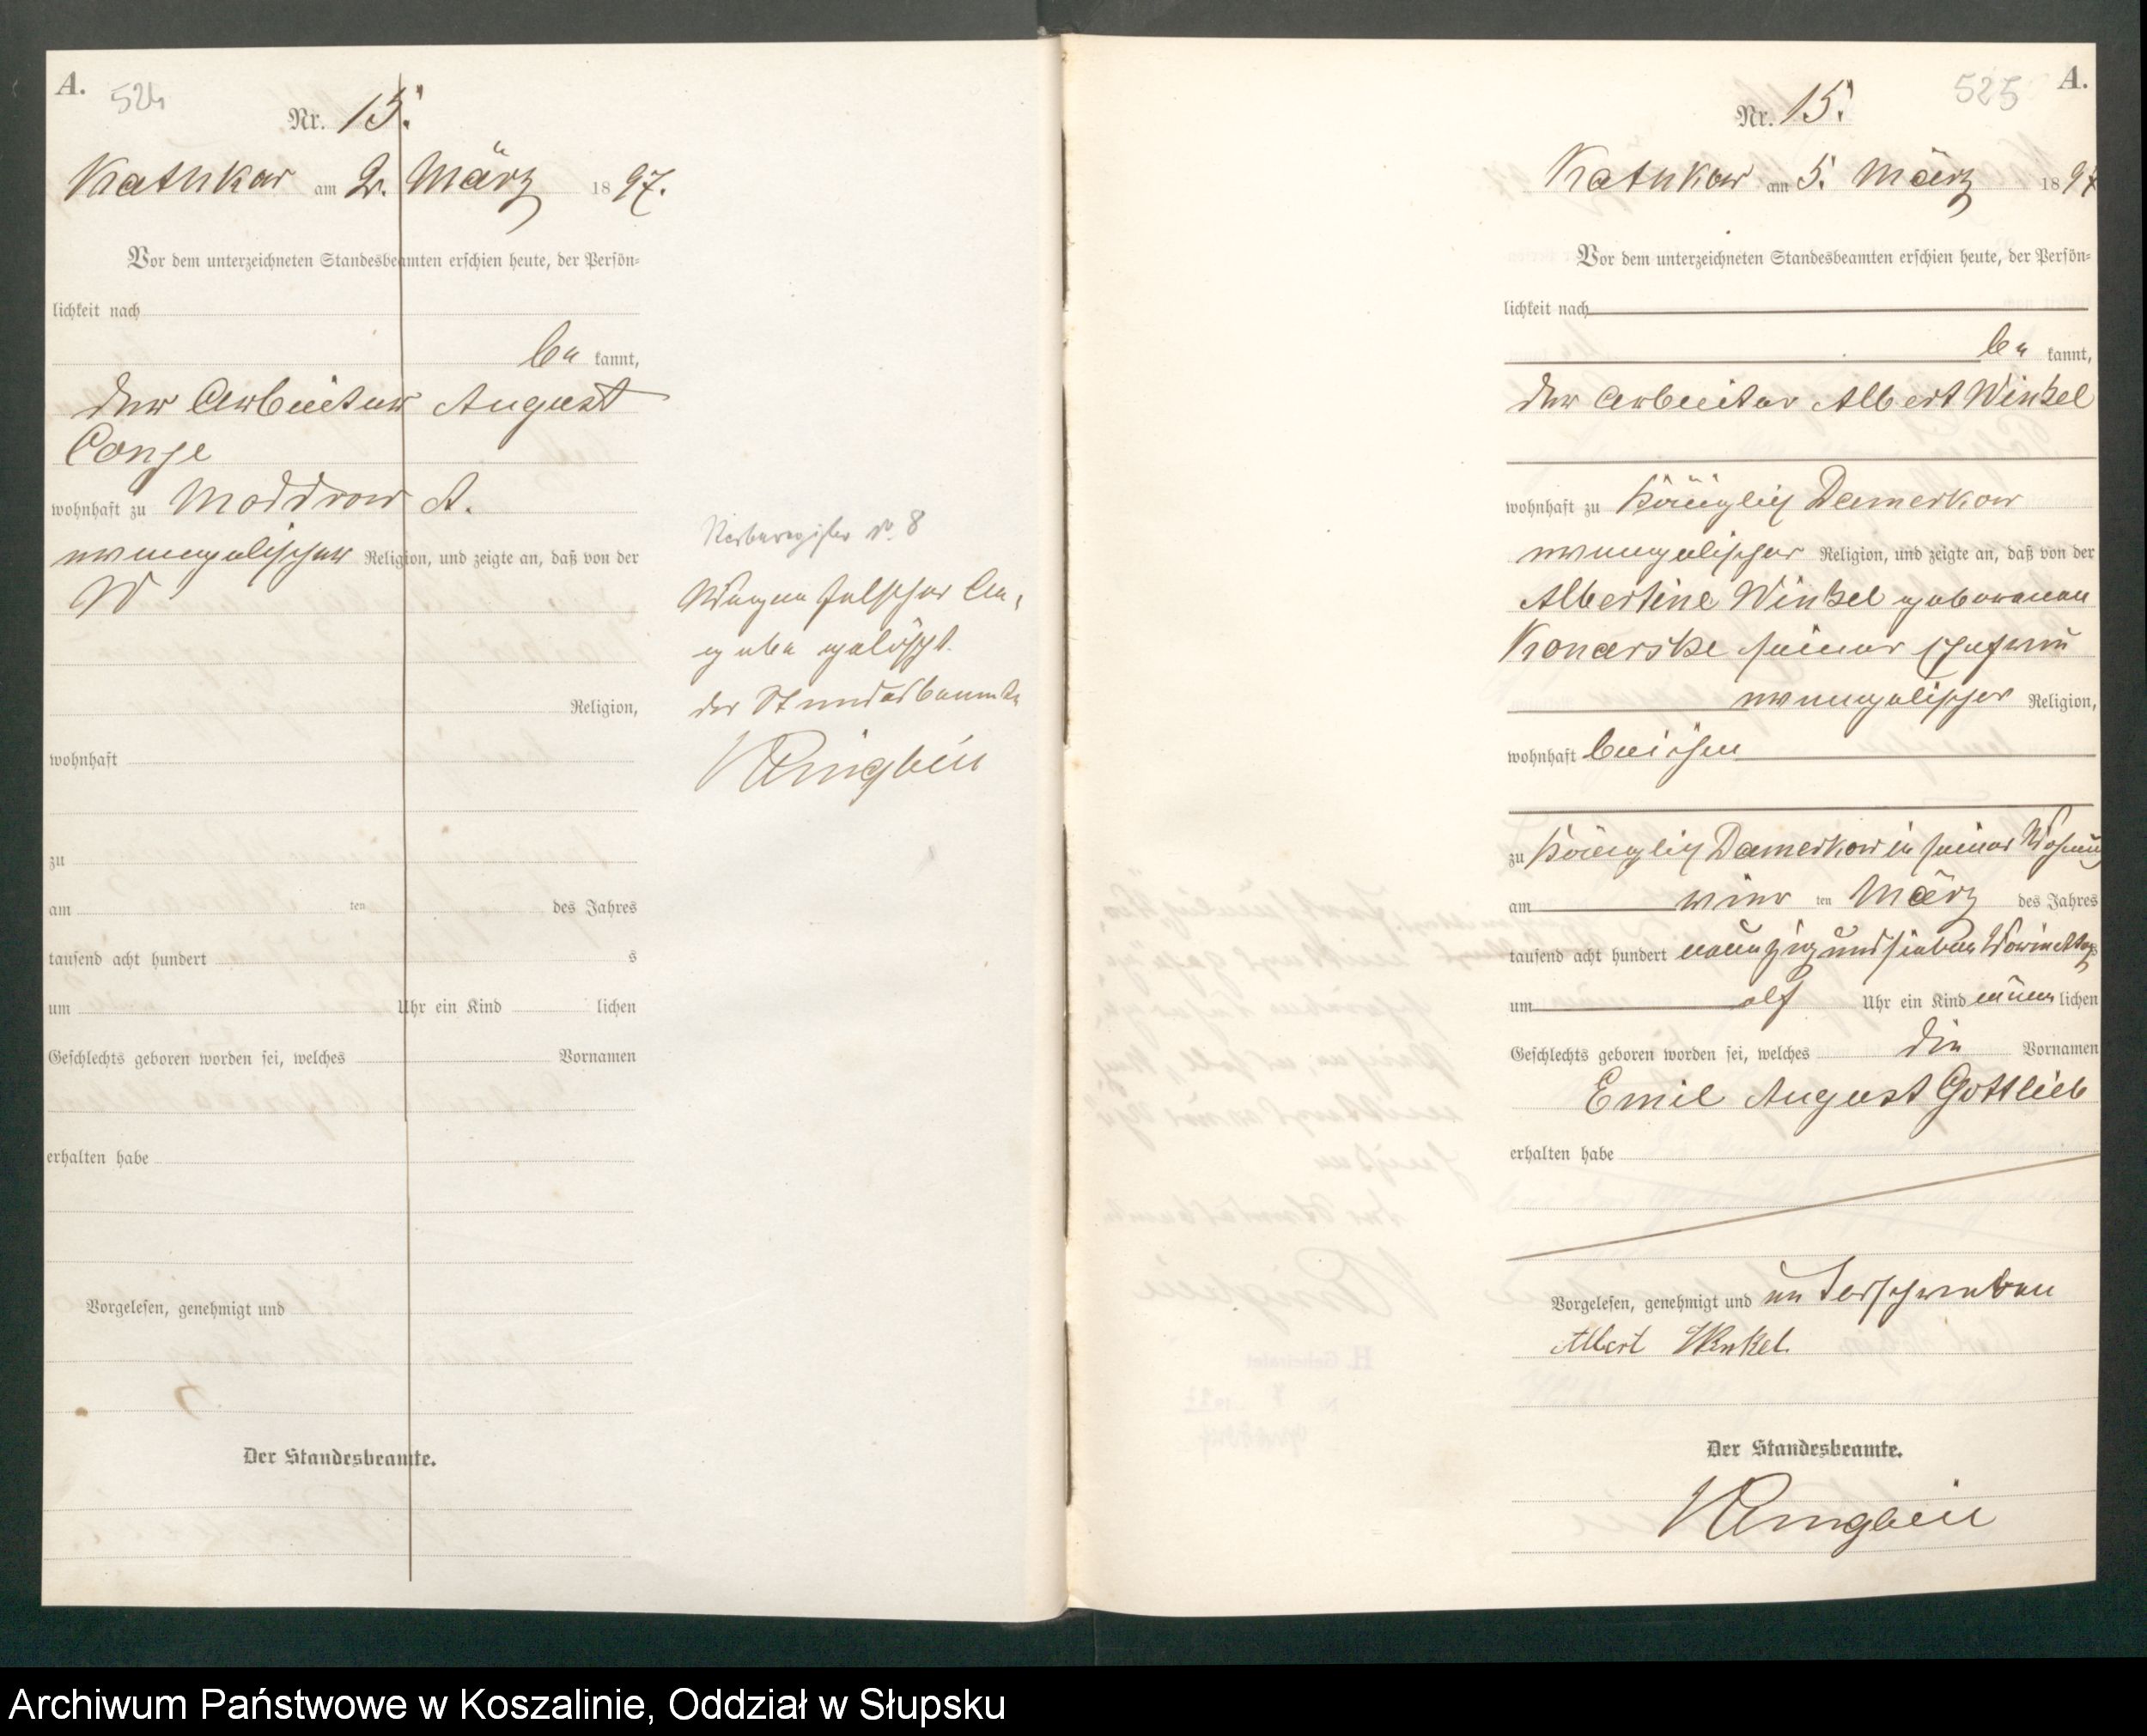 A.
524
Nr. 15.
Kathkow am 2. März 1897.
Vor dem unterzeichneten Standesbeamten erschien heute, der Persön-
lichkeit nach
be kannt,
der Arbeiter August
Conje
wohnhaft zu Moddrow A.
evangelischer Religion, und zeigte an, daß von der
W
Religion,
wohnhaft
zu
am ten des Jahres
tausend acht hundert s
um Uhr ein Kind lichen
Geschlechts geboren worden sei, welches Vornamen
erhalten habe
Vorgelesen, genehmigt und
Der Standesbeamte.
Sterberegister No. 8
Wegen falscher An-
gabe gelöscht.
der Standesbeamte
525
A.
Nr. 15.
Kathkow am 5. März 1897
Vor dem unterzeichneten Standesbeamten erschien heute, der Persön-
lichkeit nach
be kannt,
der Arbeiter Albert Winkel
wohnhaft zu Königlich Damerkow
evangelischer Religion, und zeigte an, daß von der
Albertine Winkel geborenen
Konarske seiner Ehefrau
evangelischer Religion,
wohnhaft bei ihm
zu Königlich Damerkow in seiner Wohnung
am vier ten März des Jahres
tausend acht hundert neunzig und sieben Vormittags
um elf Uhr ein Kind männ lichen
Geschlechts geboren worden sei, welches die Vornamen
Emil August Gottlieb
erhalten habe
Vorgelesen, genehmigt und unterschrieben
Albert Winkel.
Der Standesbeamte.
Archiwum Państwowe w Koszalinie, Oddział w Słupsku